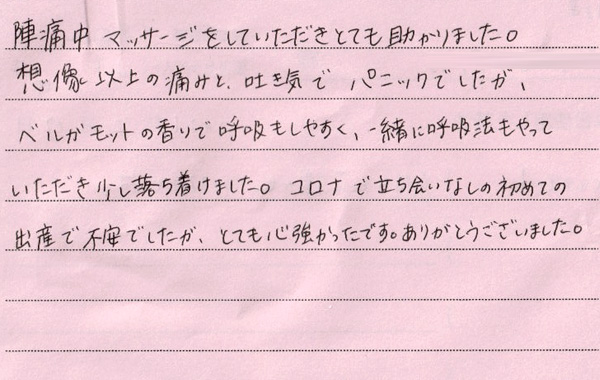 陣痛中 マッサージをしていただきとても助かりました。
想像以上の痛みと、吐き気で パニックでしたが、
ベルガモットの香りで呼吸もしやすく、一緒に呼吸法もやって
いただき少し落ち着けました。コロナで立ち会いなしの初めての
出産で不安でしたが、とても心強かったです。ありがとうございました。